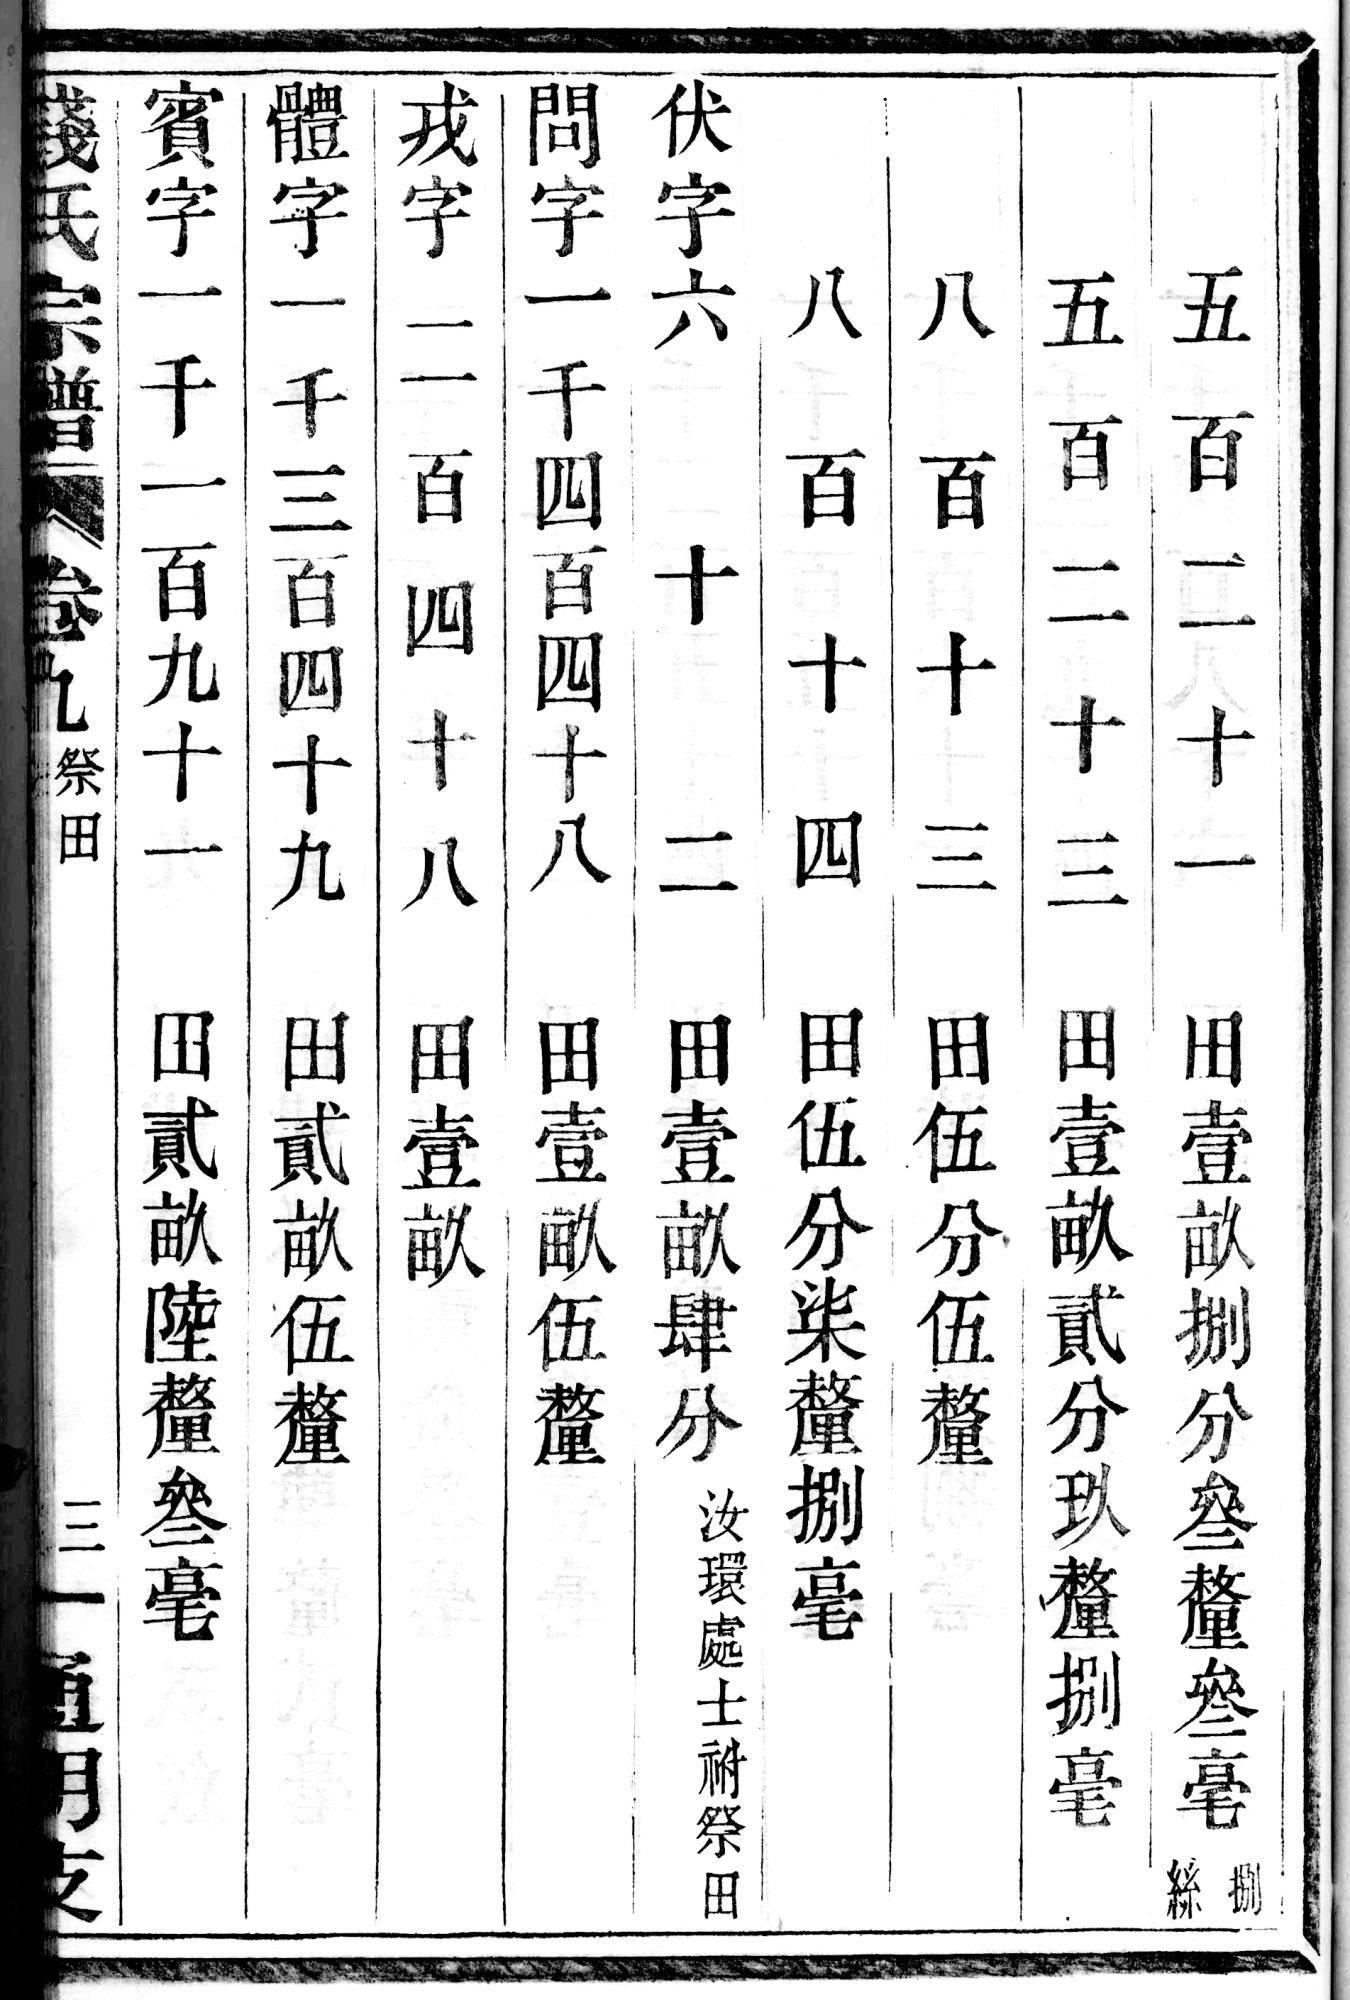 五百二十一　田壹畝捌分叁釐叁毫捌絲
五百二十三　田壹畝貳分玖釐捌毫
八百十三　田伍分伍釐
八百十四　田伍分柒釐捌毫
伏字六十二　田壹畝肆分　汝環處士祔祭田
問字一千四百四十八　田壹畝伍釐
戎字二百四十八　田壹畝
體字一千三百四十九　田貳畝伍釐
賓字一千一百九十一　田貳畝陸釐叁毫
錢氏宗譜　卷九　祭田　三一　通明支